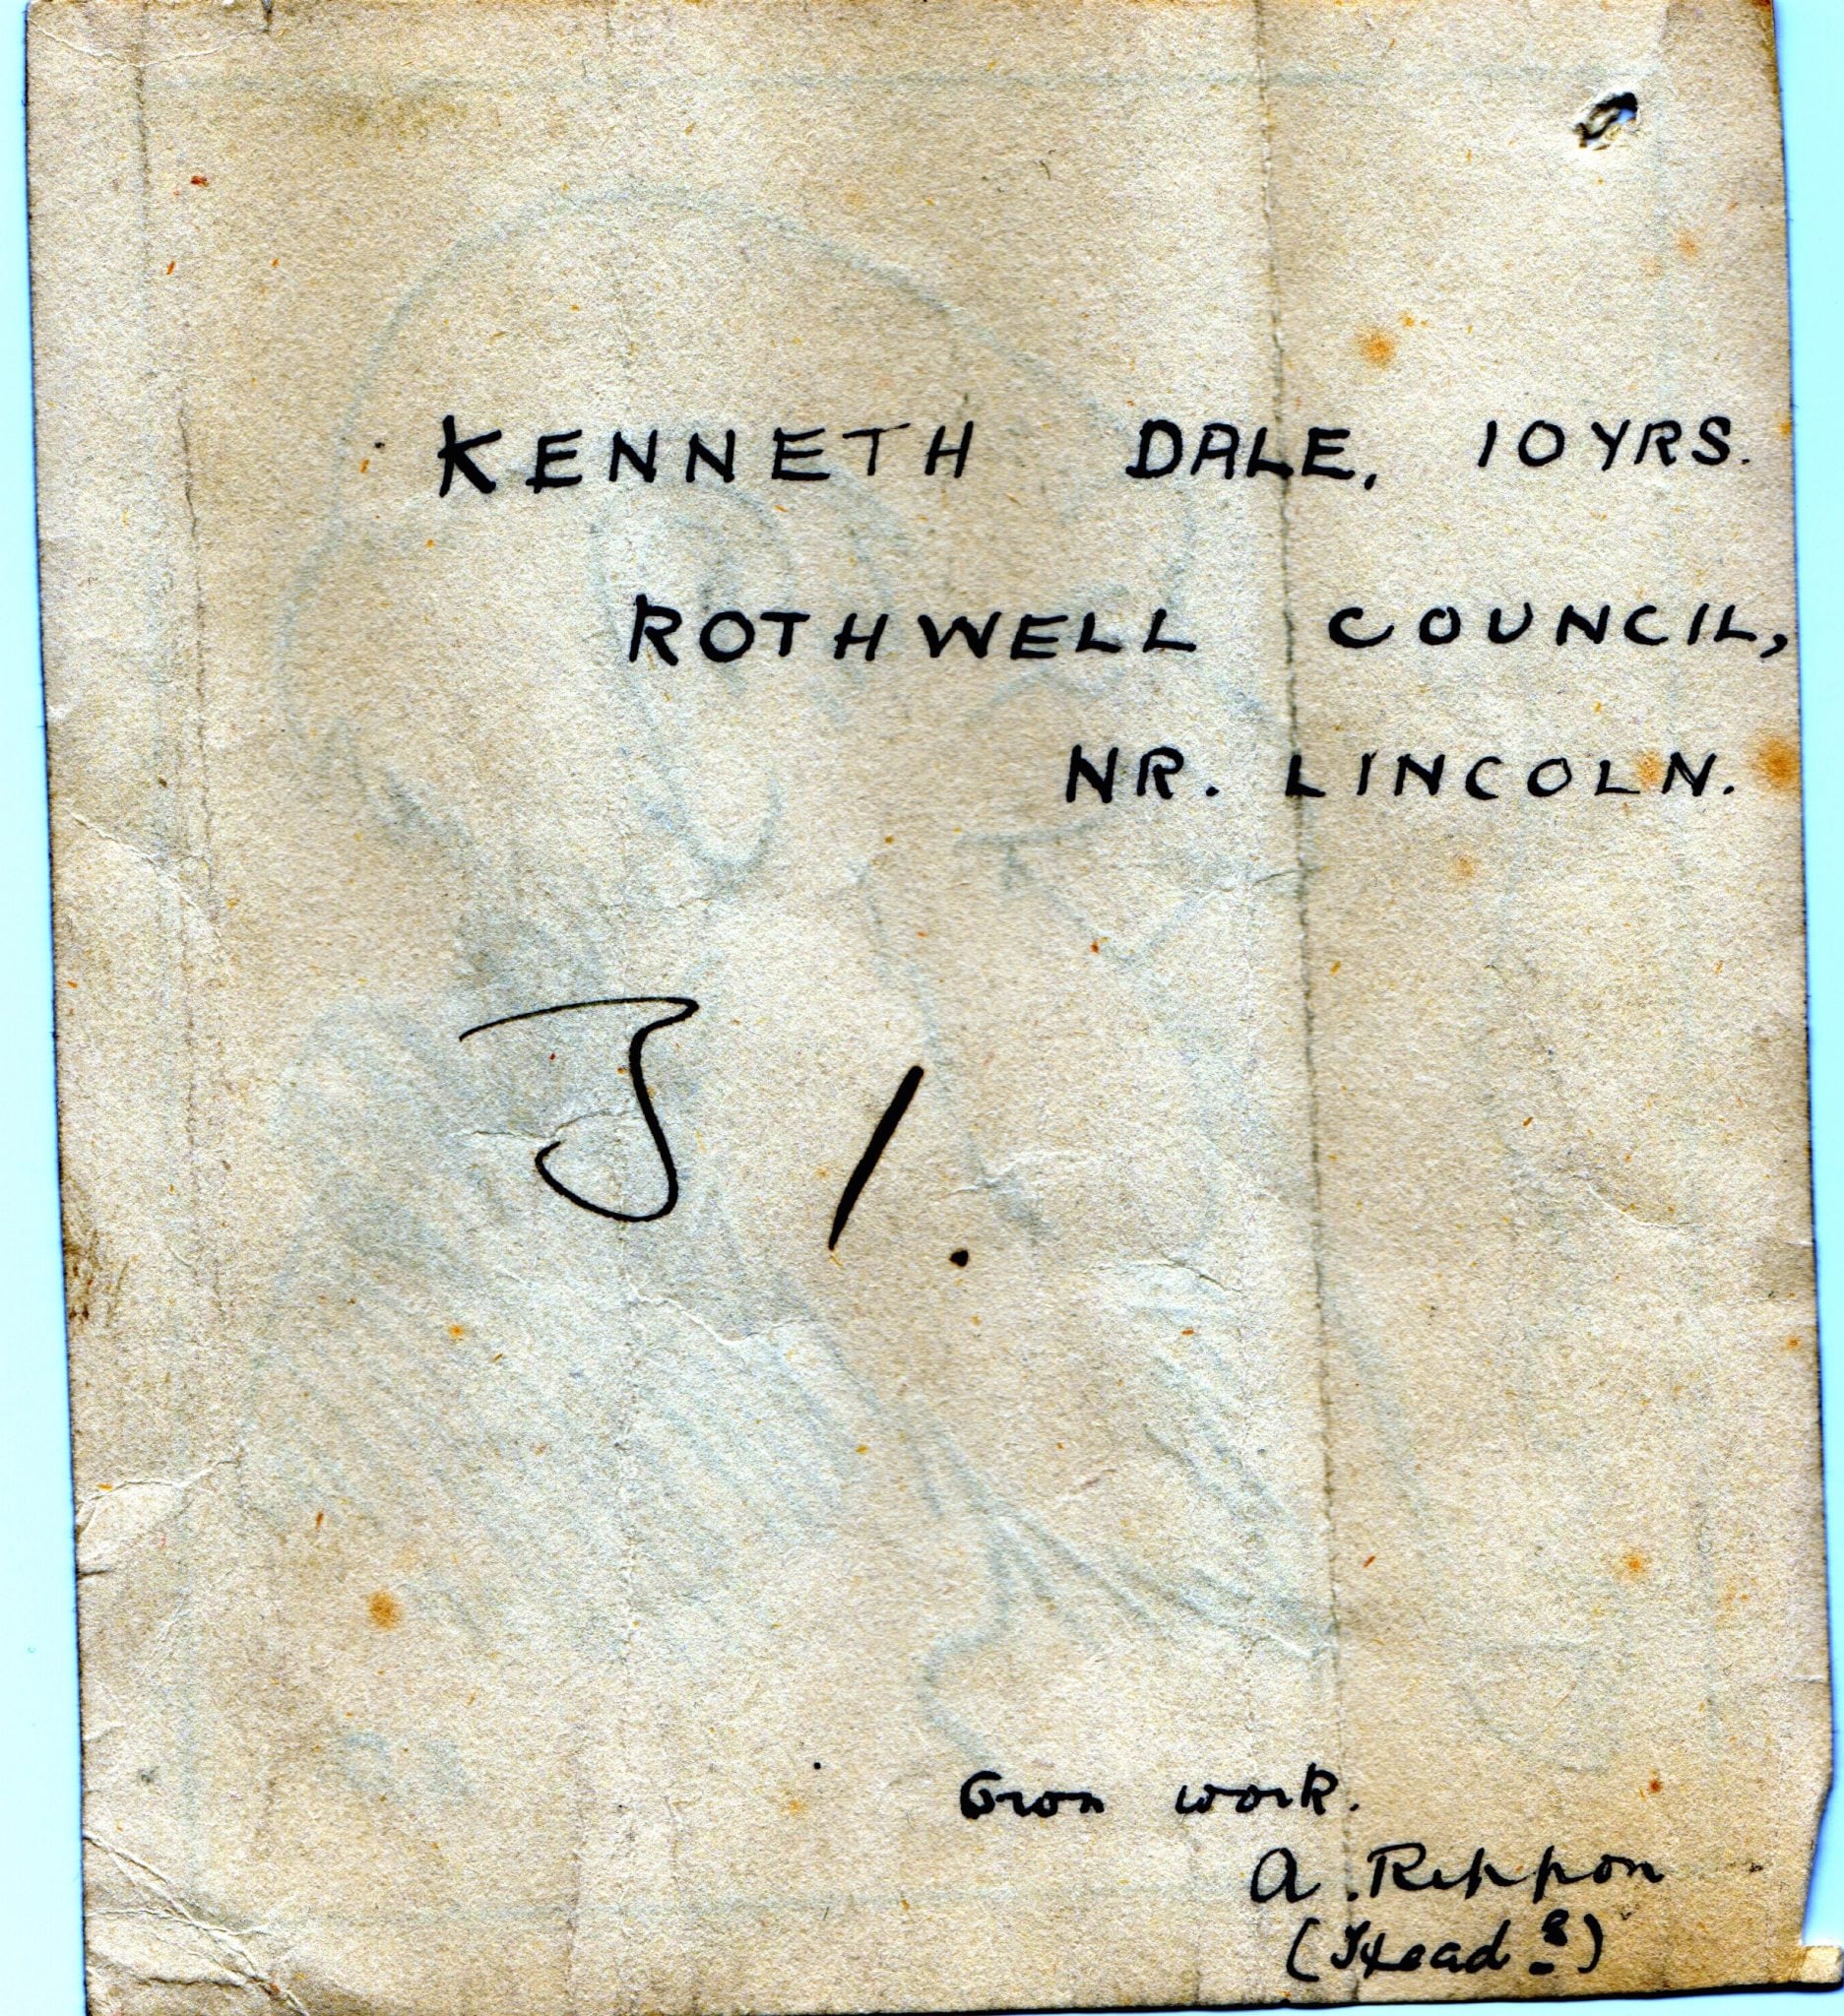 KENNETH DALE, 10 YRS.
ROTHWELL COUNCIL,
NR. LINCOLN.
J 1.
work.
A. Reppon
(Head